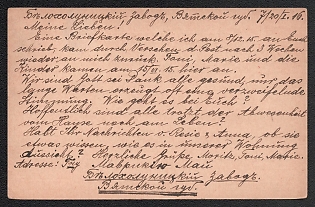 Бѣлохолуницкiй Заводъ, Вятской губ. 7/20/I. 16.
Meine Lieben!
Eine Briefkarte welche ich am 7/I. 15. an Euch
schrieb, kam durch Versehen d. Post nach 3 Wochen
wieder an mich zurück. Toni, Marie und die
Kinder kamen am 15/ 15. hier an.
Wir sind Gott sei Dank alle gesund, nur das
lange Warten erzeugt oft eine verzweifelnde
Stimmung. Wie geht es bei Euch?
Hoffentlich sind alle trotz der Abwesenheit
vom Hause noch am Leben?
Habt Ihr Nachrichten v. Resie & Anna, ob sie
etwas wissen, wie es in unserer Wohnung
aussieht? Herzliche Grüße, Moritz, Toni, Marie.
Adresse: Маврикiю Май
Бѣлохолуницкiй Заводъ.
Вятской губ.